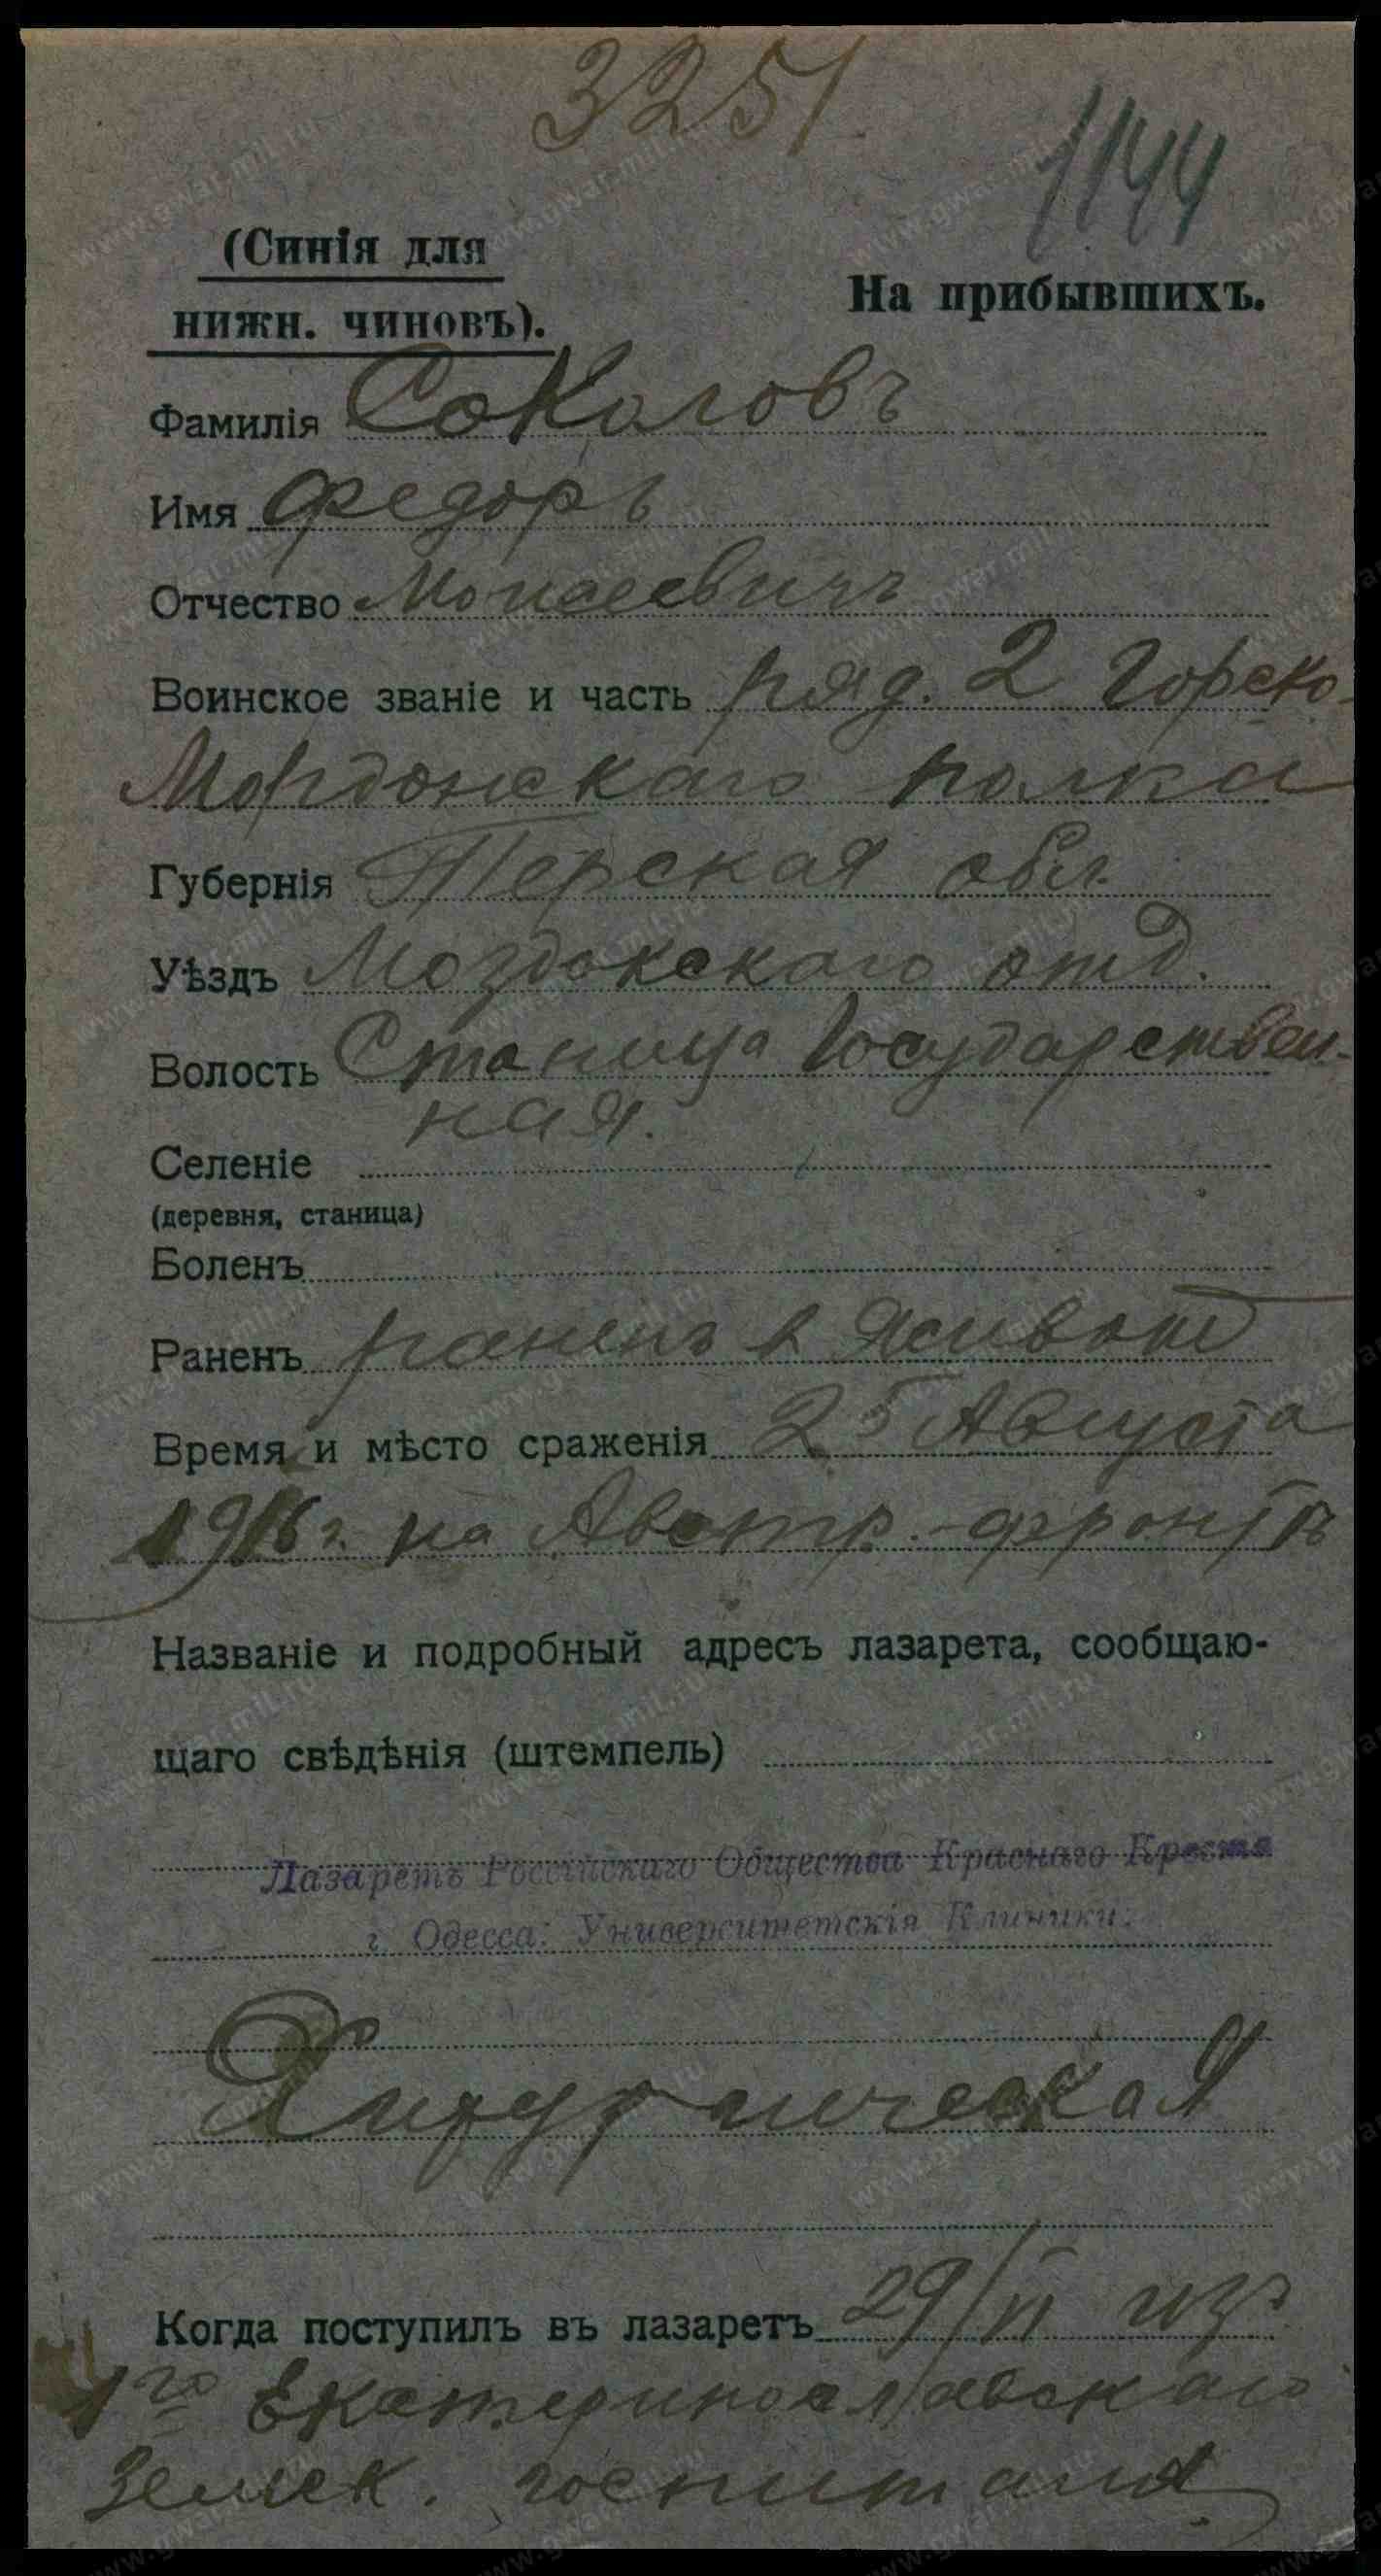 3251
1144
(Синія для
нижн. чиновъ).
На прибывшихъ.
Фамилія Соколовъ
Имя Федоръ
Отчество Моисеевичъ
Воинское званіе и часть ряд. 2 Горско-
Моздокскаго полка
Губернія Терская обл.
Уѣздъ Моздокскаго отд.
Волость Станица Государствен-
ная.
Селеніе
(деревня, станица)
Боленъ
Раненъ раненъ в живот
Время и мѣсто сраженія 25 Августа
1916 г. на Австр. фронтѣ
Названіе и подробный адресъ лазарета, сообщаю-
щаго свѣдѣнія (штемпель)
Лазаретъ Россійскаго Общества Краснаго Креста
г. Одесса: Университетскія Клиники.
Хирургическая
Когда поступилъ въ лазаретъ 29/VI изъ
1го Екатеринославскаго
Земск. госпиталя